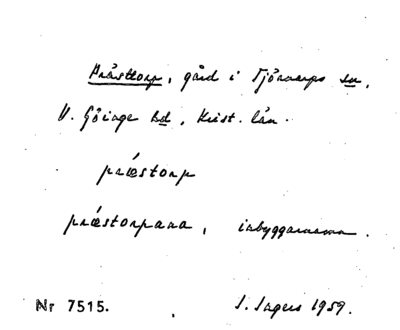 Prästtorp, gård i Tjörnarps sn,
V. Göinge hd, Krist. län.
præstorp
præstorpara, inbyggarnamn.
Nr 7515. I. Ingers 1959.